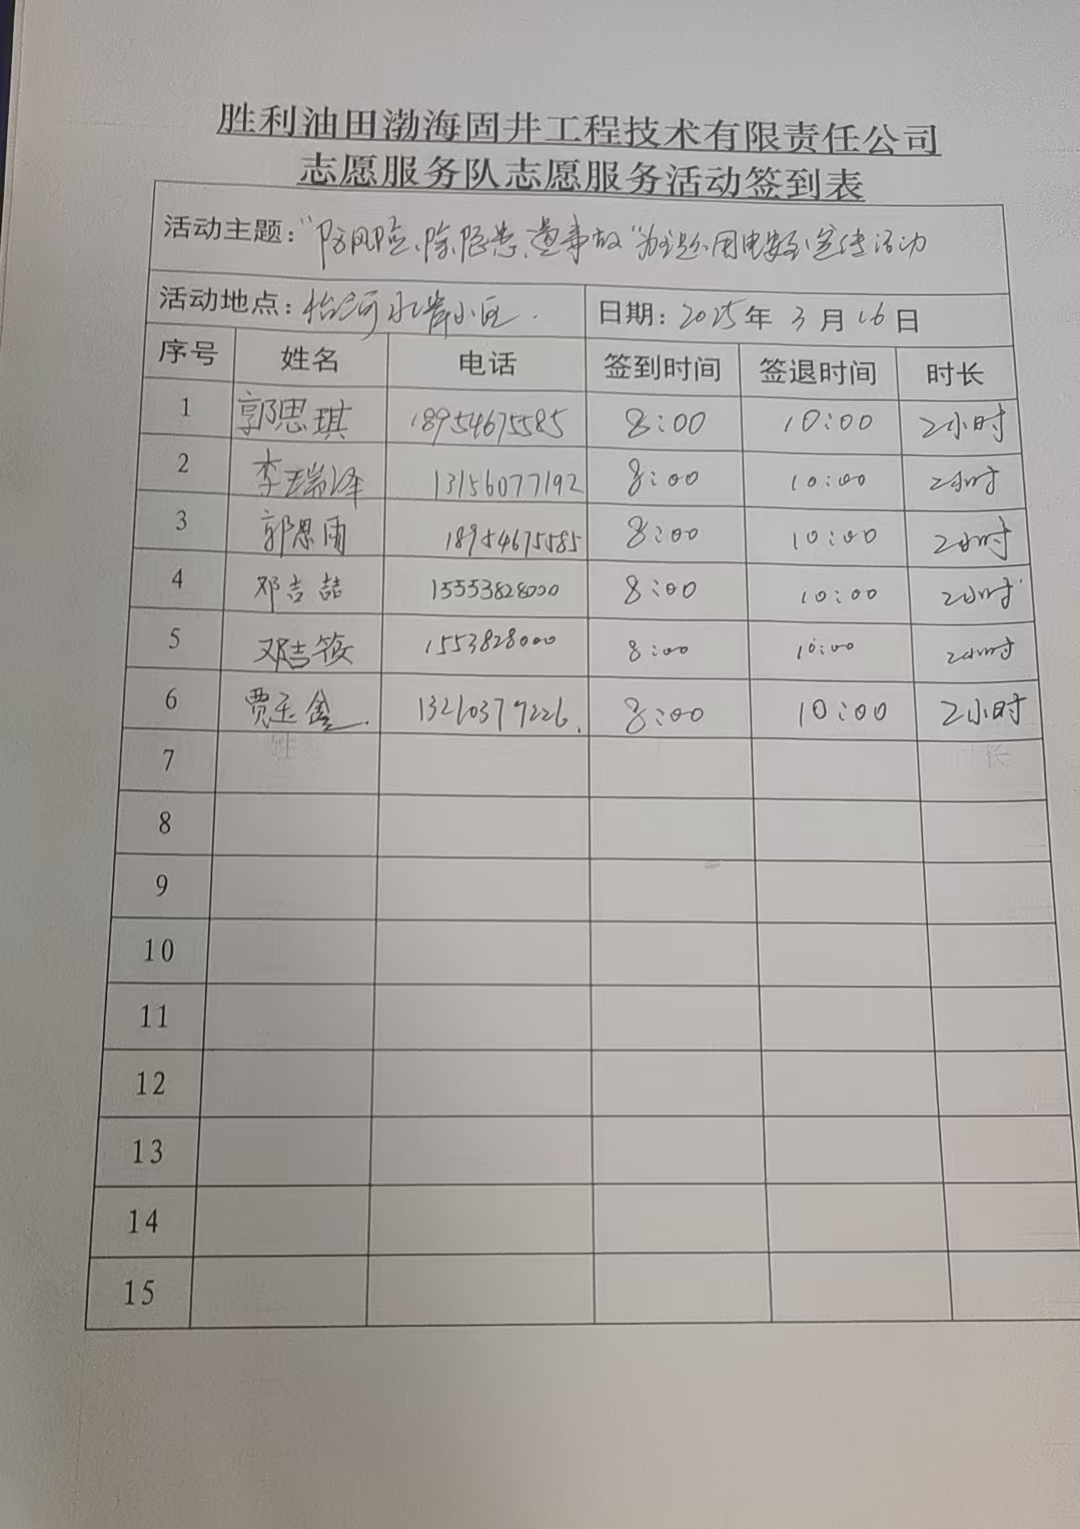 胜利油田渤海固井工程技术有限责任公司
志愿服务队志愿服务活动签到表
活动主题：“防风险、除隐患、遏事故”为主题用电安全宣传活动
活动地点：怡河水岸小区. 日期：2025年3月16日
序号 姓名 电话 签到时间 签退时间 时长
1 郭思琪 18954675585 8:00 10:00 2小时
2 李瑞泽 13156077192 8:00 10:00 2小时
3 郭思雨 18954675585 8:00 10:00 2小时
4 邓吉喆 15553828000 8:00 10:00 2小时
5 邓吉筱 1553828000 8:00 10:00 2小时
6 贾玉鑫. 13210379226. 8:00 10:00 2小时
7
8
9
10
11
12
13
14
15